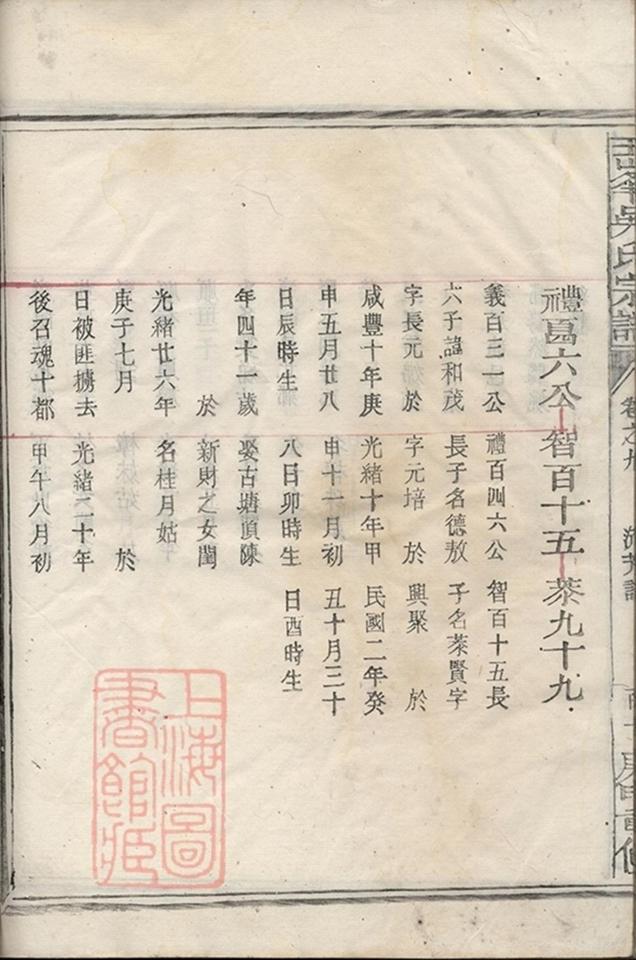 吳氏宗譜
卷之九
禮百四六公 智百十五 九十九
義百三一公
六子諱和茂
字長元 於
咸豐十年庚
申五月廿八
日辰時生
年四十一歲
於
光緒廿六年
庚子七月
日被匪擄去
後召魂十都
禮百四六公
長子名德敖
字元培 於
光緒十年甲
申十一月初
八日卯時生
娶古塘頂陳
新財之女閏
名桂月姑
於
光緒二十年
甲午八月初
智百十五長
子名賢字
興聚 於
民國二年癸
丑十月三十
日酉時生
上海圖
書館藏